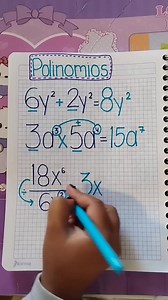 Polinomios
6y²+2y²=8y²
3a⁵x5a²=15a⁷
18x⁶
6 3x